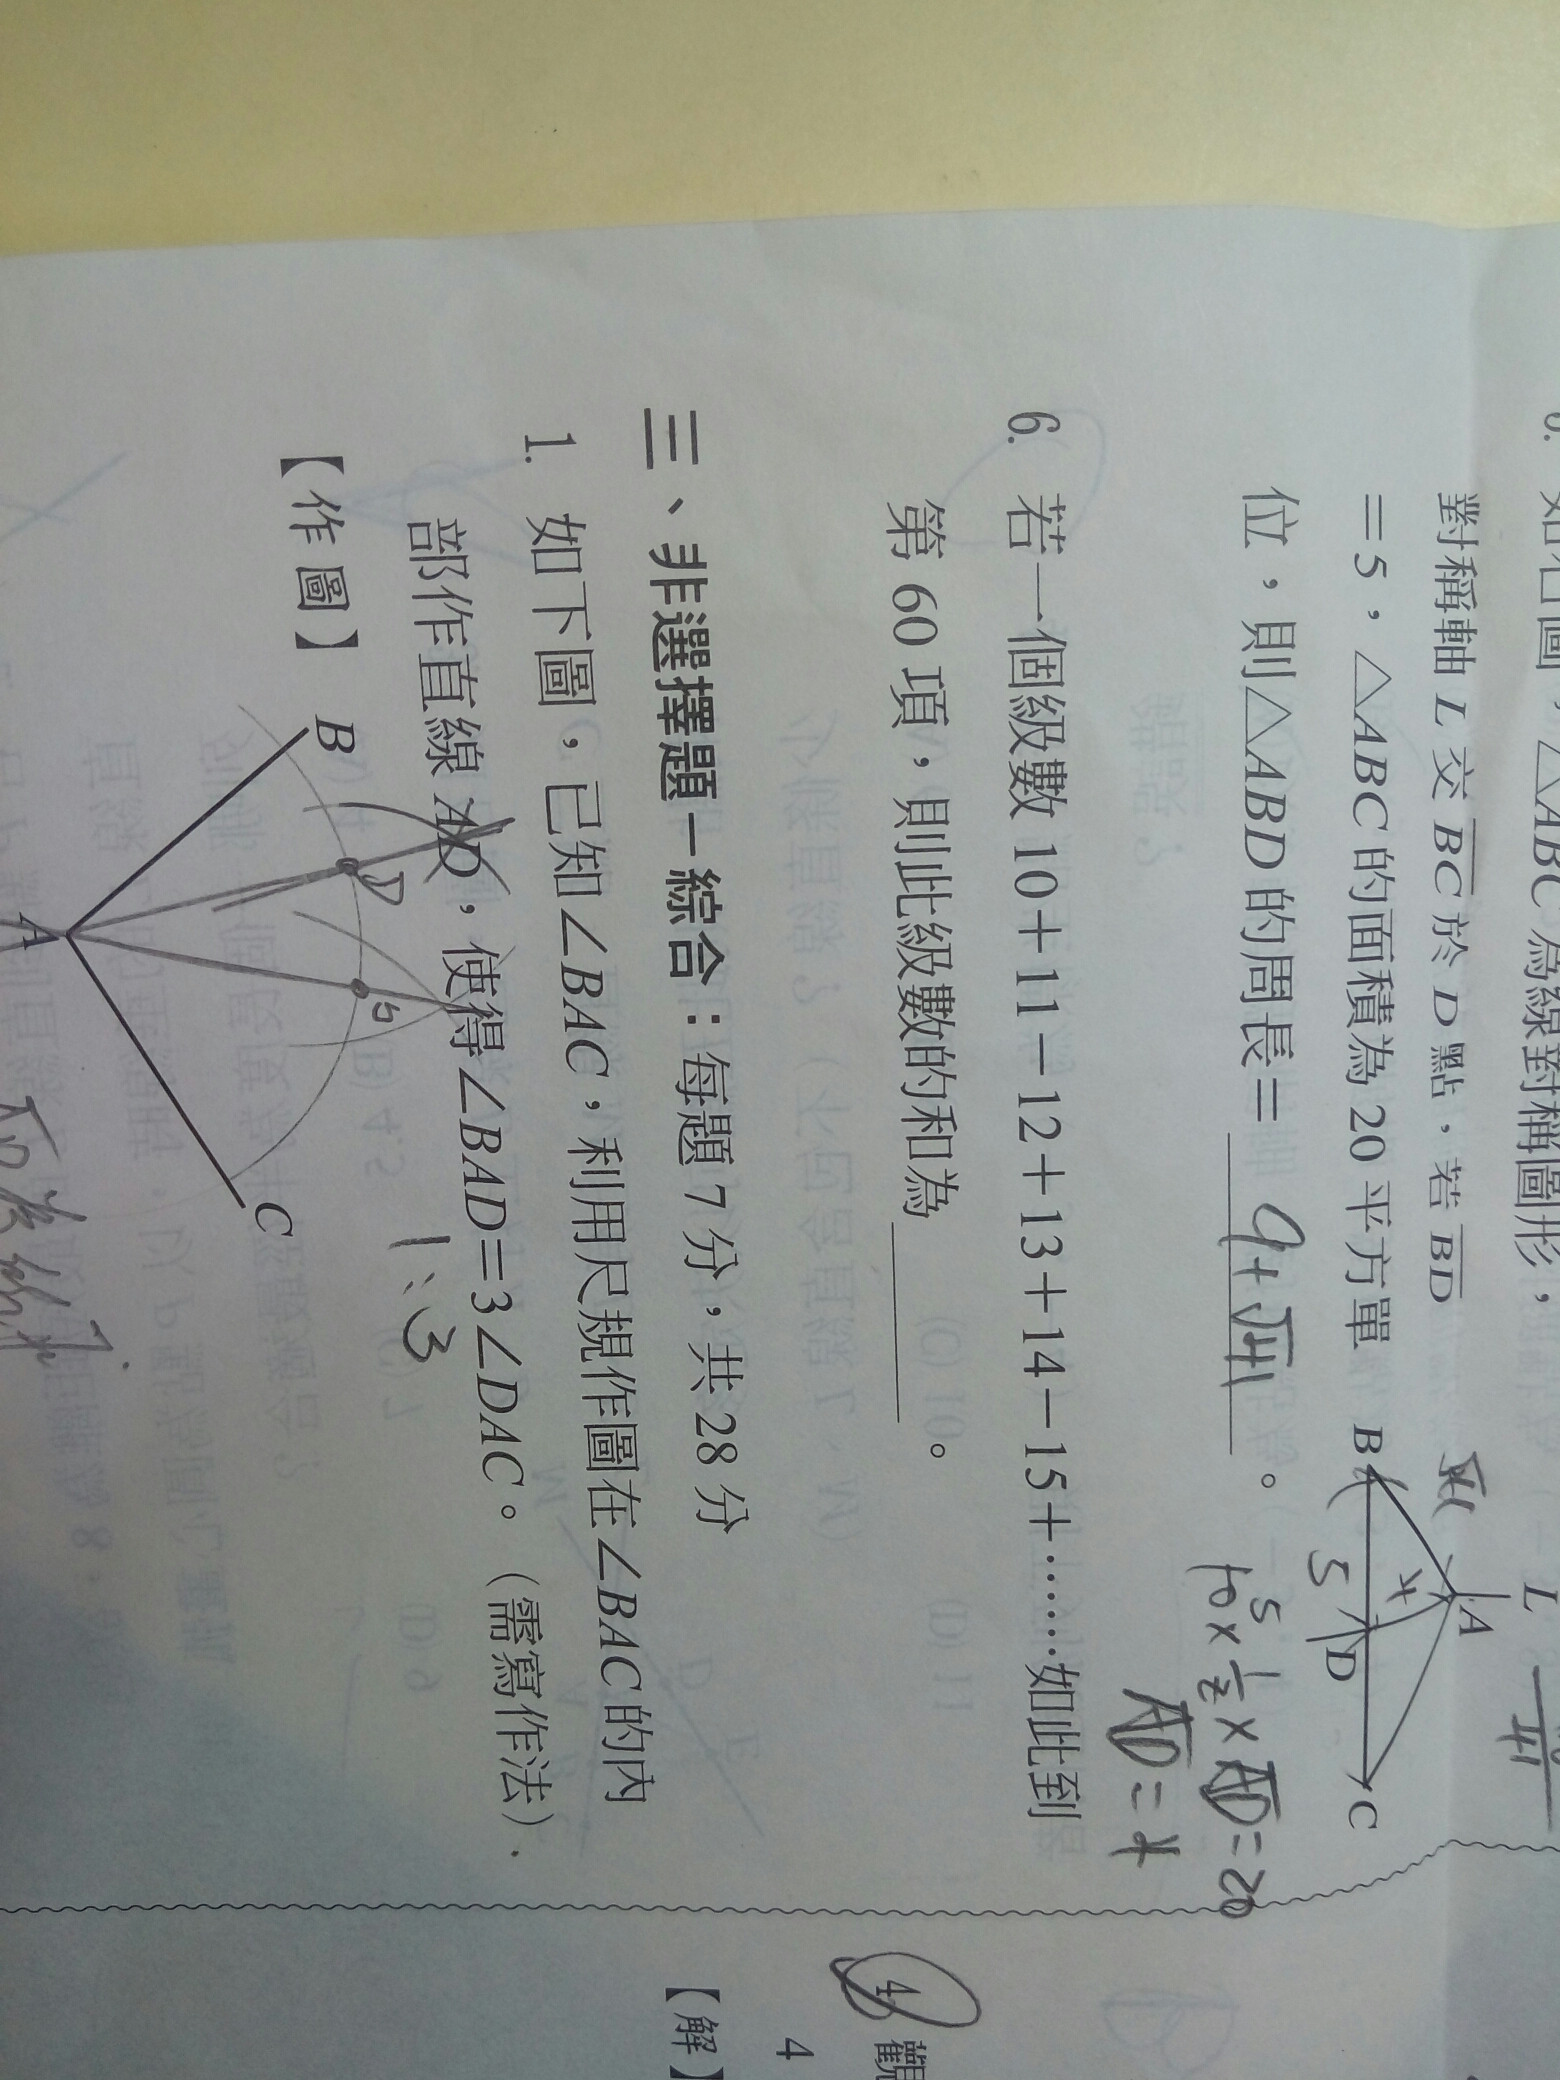 對稱軸 L 交 BC 於 D 點，若 BD
＝5，△ABC 的面積為 20 平方單
位，則△ABD 的周長＝ 9+√41 。
√41
L
A
B
4
5
D
C
10×1/2×AD=20
5
AD=4
6. 若一個級數 10＋11－12＋13＋14－15＋……如此到
第 60 項，則此級數的和為＿＿＿。
三、非選擇題－綜合：每題 7 分，共 28 分
1. 如下圖，已知∠BAC，利用尺規作圖在∠BAC 的內
部作直線 AD，使得∠BAD＝3∠DAC。（需寫作法）.
1:3
【作圖】
B
D
A
C
4
觀
4
【解】